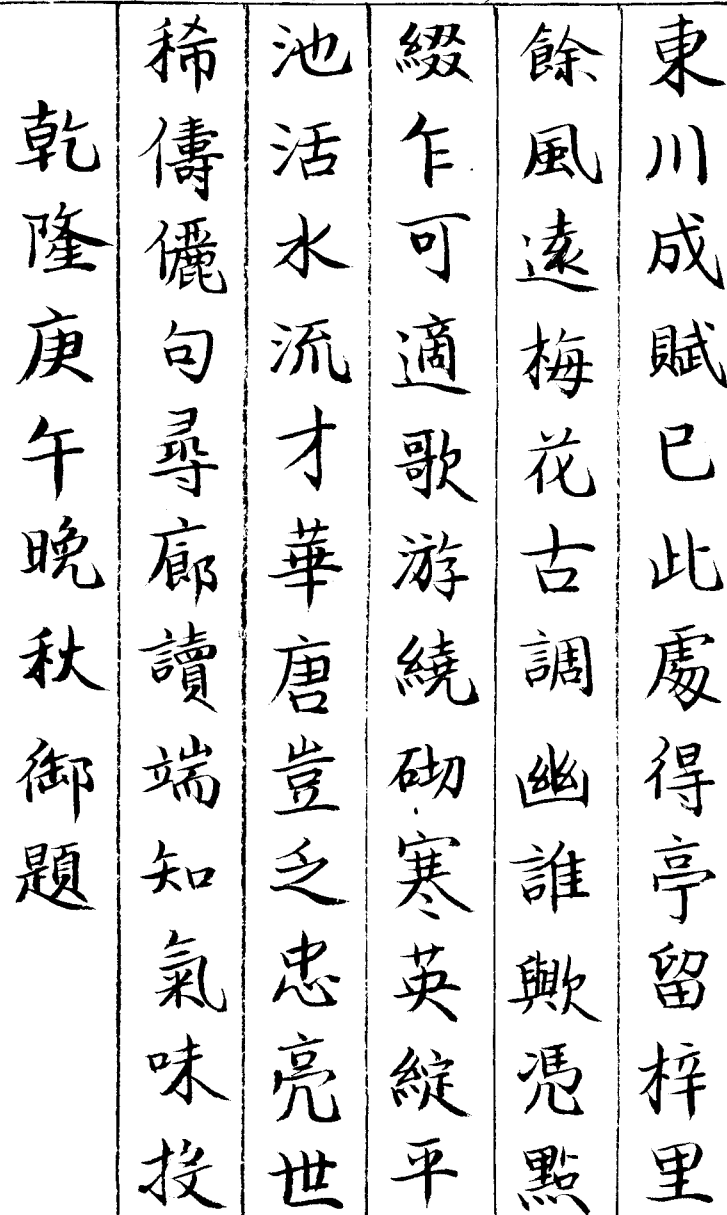 東川成賦已此處得亭留梓里
餘風遠梅花古調幽誰歟憑點
綴乍可適歌游繞砌寒英綻平
池活水流才華唐豈乏忠亮世
稀儔儷句尋廊讀端知氣味投
乾隆庚午晚秋御題